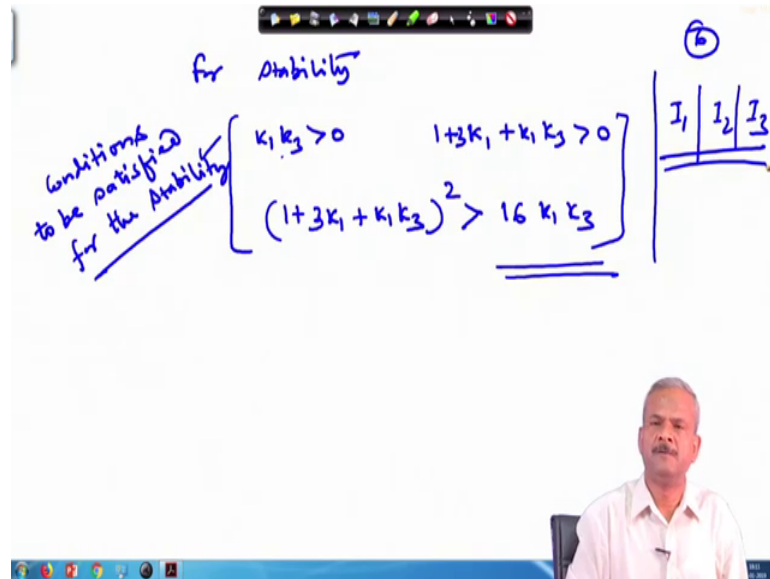 for stability
conditions
to be satisfied
for the stability
K₁ K₃ > 0 1+3K₁ + K₁ K₃ > 0
(1+3K₁ + K₁ K₃)² > 16 K₁ K₃
I₁ | I₂ | I₃